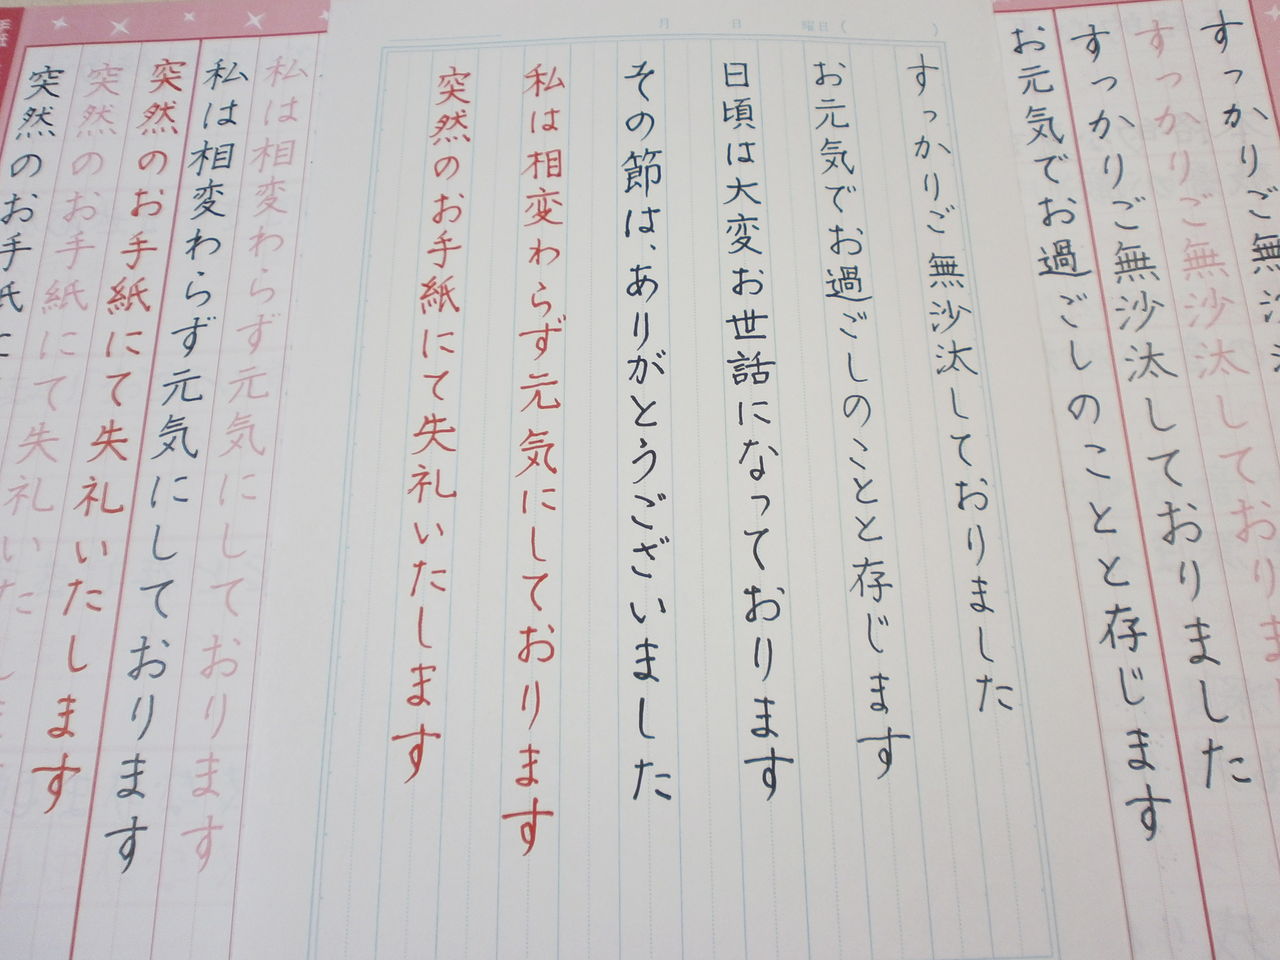 すっかりご無沙
すっかりご無沙汰しておりま
すっかりご無沙汰しておりました
お元気でお過ごしのことと存じます
月 日 曜日( )
すっかりご無沙汰しておりました
お元気でお過ごしのことと存じます
日頃は大変お世話になっております
その節は、ありがとうございました
私は相変わらず元気にしております
突然のお手紙にて失礼いたします
私は相変わらず元気にしております
私は相変わらず元気にしております
突然のお手紙にて失礼いたします
突然のお手紙にて失礼いたしま
突然のお手紙に